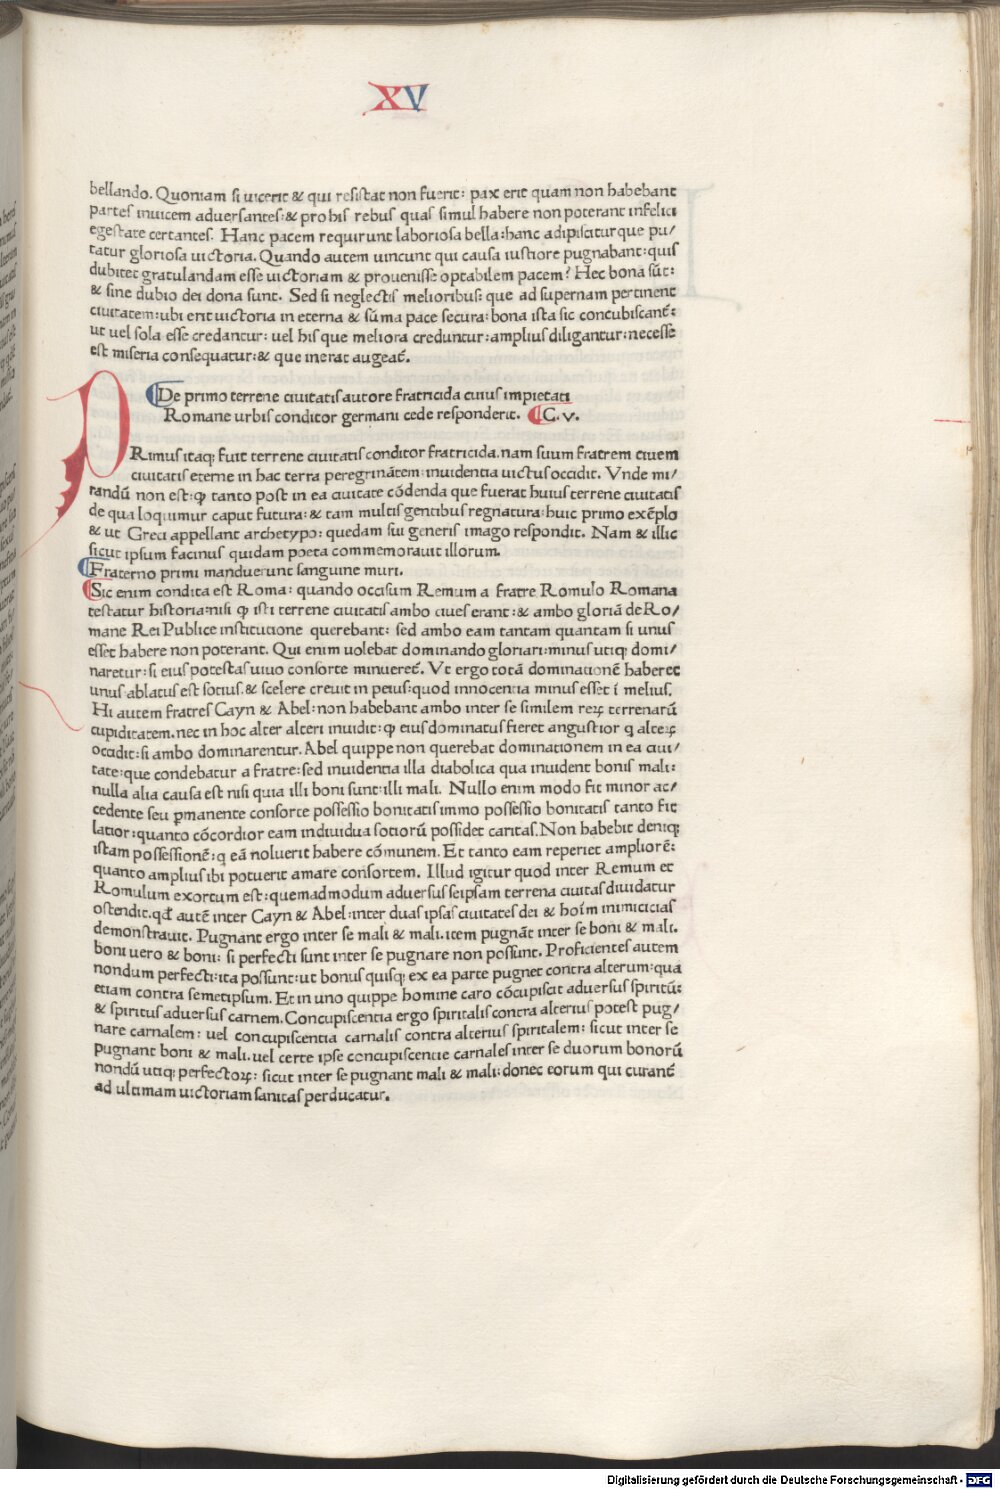 XV
bellando. Quoniam si uicerit & qui resistat non fuerit: pax erit quam non habebant
partes inuicem aduersantes:& pro his rebus quas simul habere non poterant infelici
egestate certantes. Hanc pacem requirunt laboriosa bella:hanc adipiscitur que pu/
tatur gloriosa uictoria. Quando autem uincunt qui causa iustiore pugnabant:quis
dubitet gratulandam esse uictoriam & prouenisse optabilem pacem? Hec bona sūt:
& sine dubio dei dona sunt. Sed si neglectis melioribus: que ad supernam pertinent
ciuitatem:ubi erit uictoria in eterna & sūma pace secura: bona ista sic concubiscant̃:
ut uel sola esse credantur: uel his que meliora creduntur:amplius diligantur:necesse
est miseria consequatur:& que inerat augeat̃.
De primo terrene ciuitatis autore fratricida cuius impietati
Romane urbis conditor germani cede responderit. C. v.
PRimus itaq; fuit terrene ciuitatis conditor fratricida.nam suum fratrem ciuem
ciuitatis eterne in hac terra peregrināntem:inuidentia uictus occidit. Vnde mi/
randū non est: ꝙ tanto post in ea ciuitate cōdenda que fuerat huius terrene ciuitatis
de qua loquimur caput futura:& tam multis gentibus regnatura:huic primo exēplo
& ut Greci appellant archetypo: quedam sui generis imago respondit. Nam & illic
sicut ipsum facinus quidam poeta commemorauit illorum.
Fraterno primi maduerunt sanguine muri.
Sic enim condita est Roma: quando occisum Remum a fratre Romulo Romana
testatur historia:nisi ꝙ isti terrene ciuitatis ambo ciues erant:& ambo gloriā de Ro/
mane Rei Publice institutione querebant: sed ambo eam tantam quantam si unus
esset habere non poterant. Qui enim uolebat dominando gloriari:minus utiq; domi/
naretur:si eius potestas uiuo consorte minueret̃. Vt ergo totā dominationē haberet
unus ablatus est socius.& scelere creuit in peius:quod innocentia minus esset ī melius.
Hi autem fratres Cayn & Abel:non habebant ambo inter se similem reꝝ terrenarū
cupiditatem.nec in hoc alter alteri inuidit:ꝙ eius dominatus fieret angustior q alteꝝ
occidit:si ambo dominarentur. Abel quippe non querebat dominationem in ea ciui/
tate:que condebatur a fratre:sed inuidentia illa diabolica qua inuident bonis mali:
nulla alia causa est nisi quia illi boni sunt:illi mali. Nullo enim modo fit minor ac/
cedente seu ꝑmanente consorte possessio bonitatis immo possessio bonitatis tanto fit
latior:quanto cōcordior eam indiuidua sociorū possidet caritas. Non habebit deniq;
istam possessionē:q eā noluerit habere cōmunem. Et tanto eam reperiet ampliorē:
quanto amplius ibi potuerit amare consortem. Illud igitur quod inter Remum et
Romulum exortum est:quemadmodum aduersus seipsam terrena ciuitas diuidatur
ostendit.qđ autē inter Cayn & Abel:inter duas ipsas ciuitates dei & hoīm inimicicias
demonstrauit. Pugnant ergo inter se mali & mali.item pugnāt inter se boni & mali.
boni uero & boni: si perfecti sunt inter se pugnare non possunt. Proficientes autem
nondum perfecti:ita possunt:ut bonus quisq; ex ea parte pugnet contra alterum:qua
etiam contra semetipsum. Et in uno quippe homine caro cōcupiscit aduersus spiritū:
& spiritus aduersus carnem. Concupiscentia ergo spiritalis contra alterius potest pug/
nare carnalem: uel concupiscentia carnalis contra alterius spiritalem: sicut inter se
pugnant boni & mali.uel certe ipse concupiscentie carnales inter se duorum bonorū
nondū utiq; perfectoꝝ: sicut inter se pugnant mali & mali:donec eorum qui curant̃
ad ultimam uictoriam sanitas perducatur.
Digitalisierung gefördert durch die Deutsche Forschungsgemeinschaft - DFG